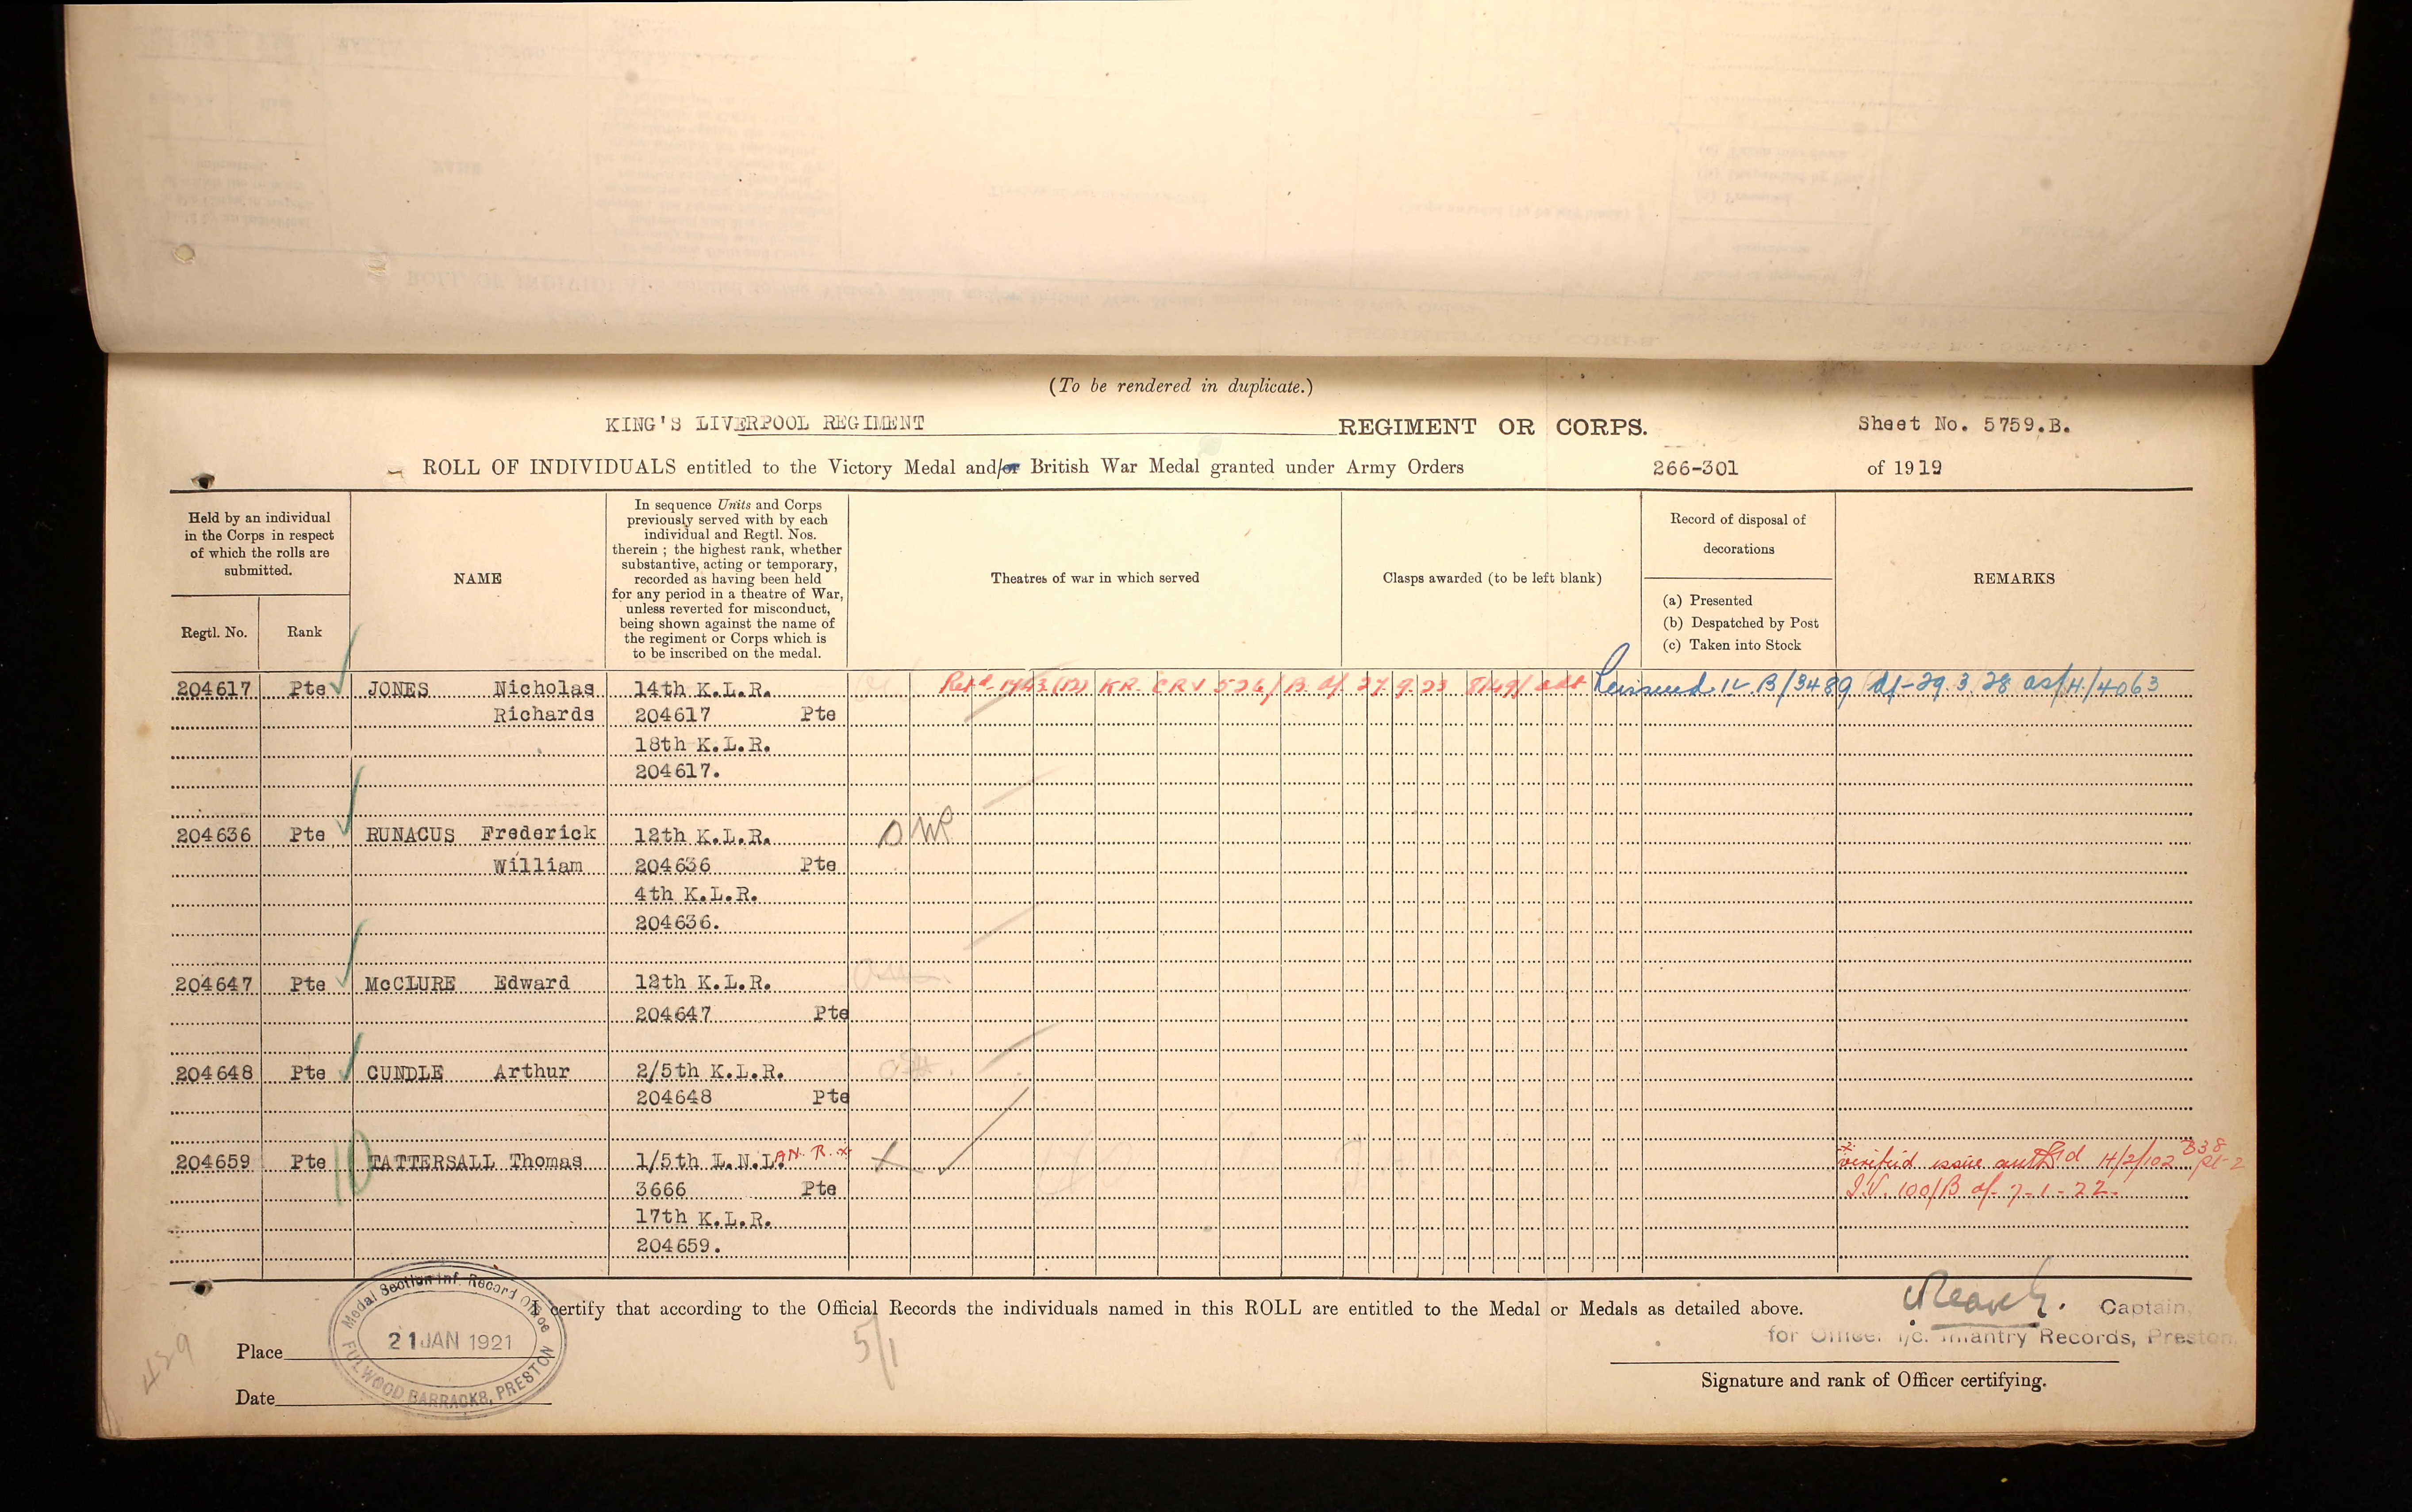 (To be rendered in duplicate.)
KING'S LIVERPOOL REGIMENT REGIMENT OR CORPS. Sheet No. 5759.B.
ROLL OF INDIVIDUALS entitled to the Victory Medal and/or British War Medal granted under Army Orders 266-301 of 1919
Held by an individual
in the Corps in respect
of which the rolls are
submitted.
Regtl. No. Rank
NAME
In sequence Units and Corps
previously served with by each
individual and Regtl. Nos.
therein ; the highest rank, whether
substantive, acting or temporary,
recorded as having been held
for any period in a theatre of War,
unless reverted for misconduct,
being shown against the name of
the regiment or Corps which is
to be inscribed on the medal.
Theatres of war in which served
Clasps awarded (to be left blank)
Record of disposal of
decorations
(a) Presented
(b) Despatched by Post
(c) Taken into Stock
REMARKS
204617 Pte JONES Nicholas 14th K.L.R. Retd. 1743 (12) KR. CRV 526/B. of 27.9.23 8149/adt IV B/3489 df-29.3.28 as/H/4063
Richards 204617 Pte
18th K.L.R.
204617.
204636 Pte RUNACUS Frederick 12th K.L.R.
William 204636 Pte
4th K.L.R.
204636.
204647 Pte McCLURE Edward 12th K.L.R.
204647 Pte
204648 Pte CUNDLE Arthur 2/5th K.L.R.
204648 Pte
204659 Pte TATTERSALL Thomas 1/5th L.N.L. AN. R. x X verified issue authd H/2/102 B38 pt-2
3666 Pte I.V. 100/B of 7-1-22.
17th K.L.R.
204659.
I certify that according to the Official Records the individuals named in this ROLL are entitled to the Medal or Medals as detailed above.
Captain,
for Officer i/c. Infantry Records, Preston.
Signature and rank of Officer certifying.
Place
Date
Medal Section Inf. Record Office
21 JAN 1921
FULWOOD BARRACKS, PRESTON
5/1
429